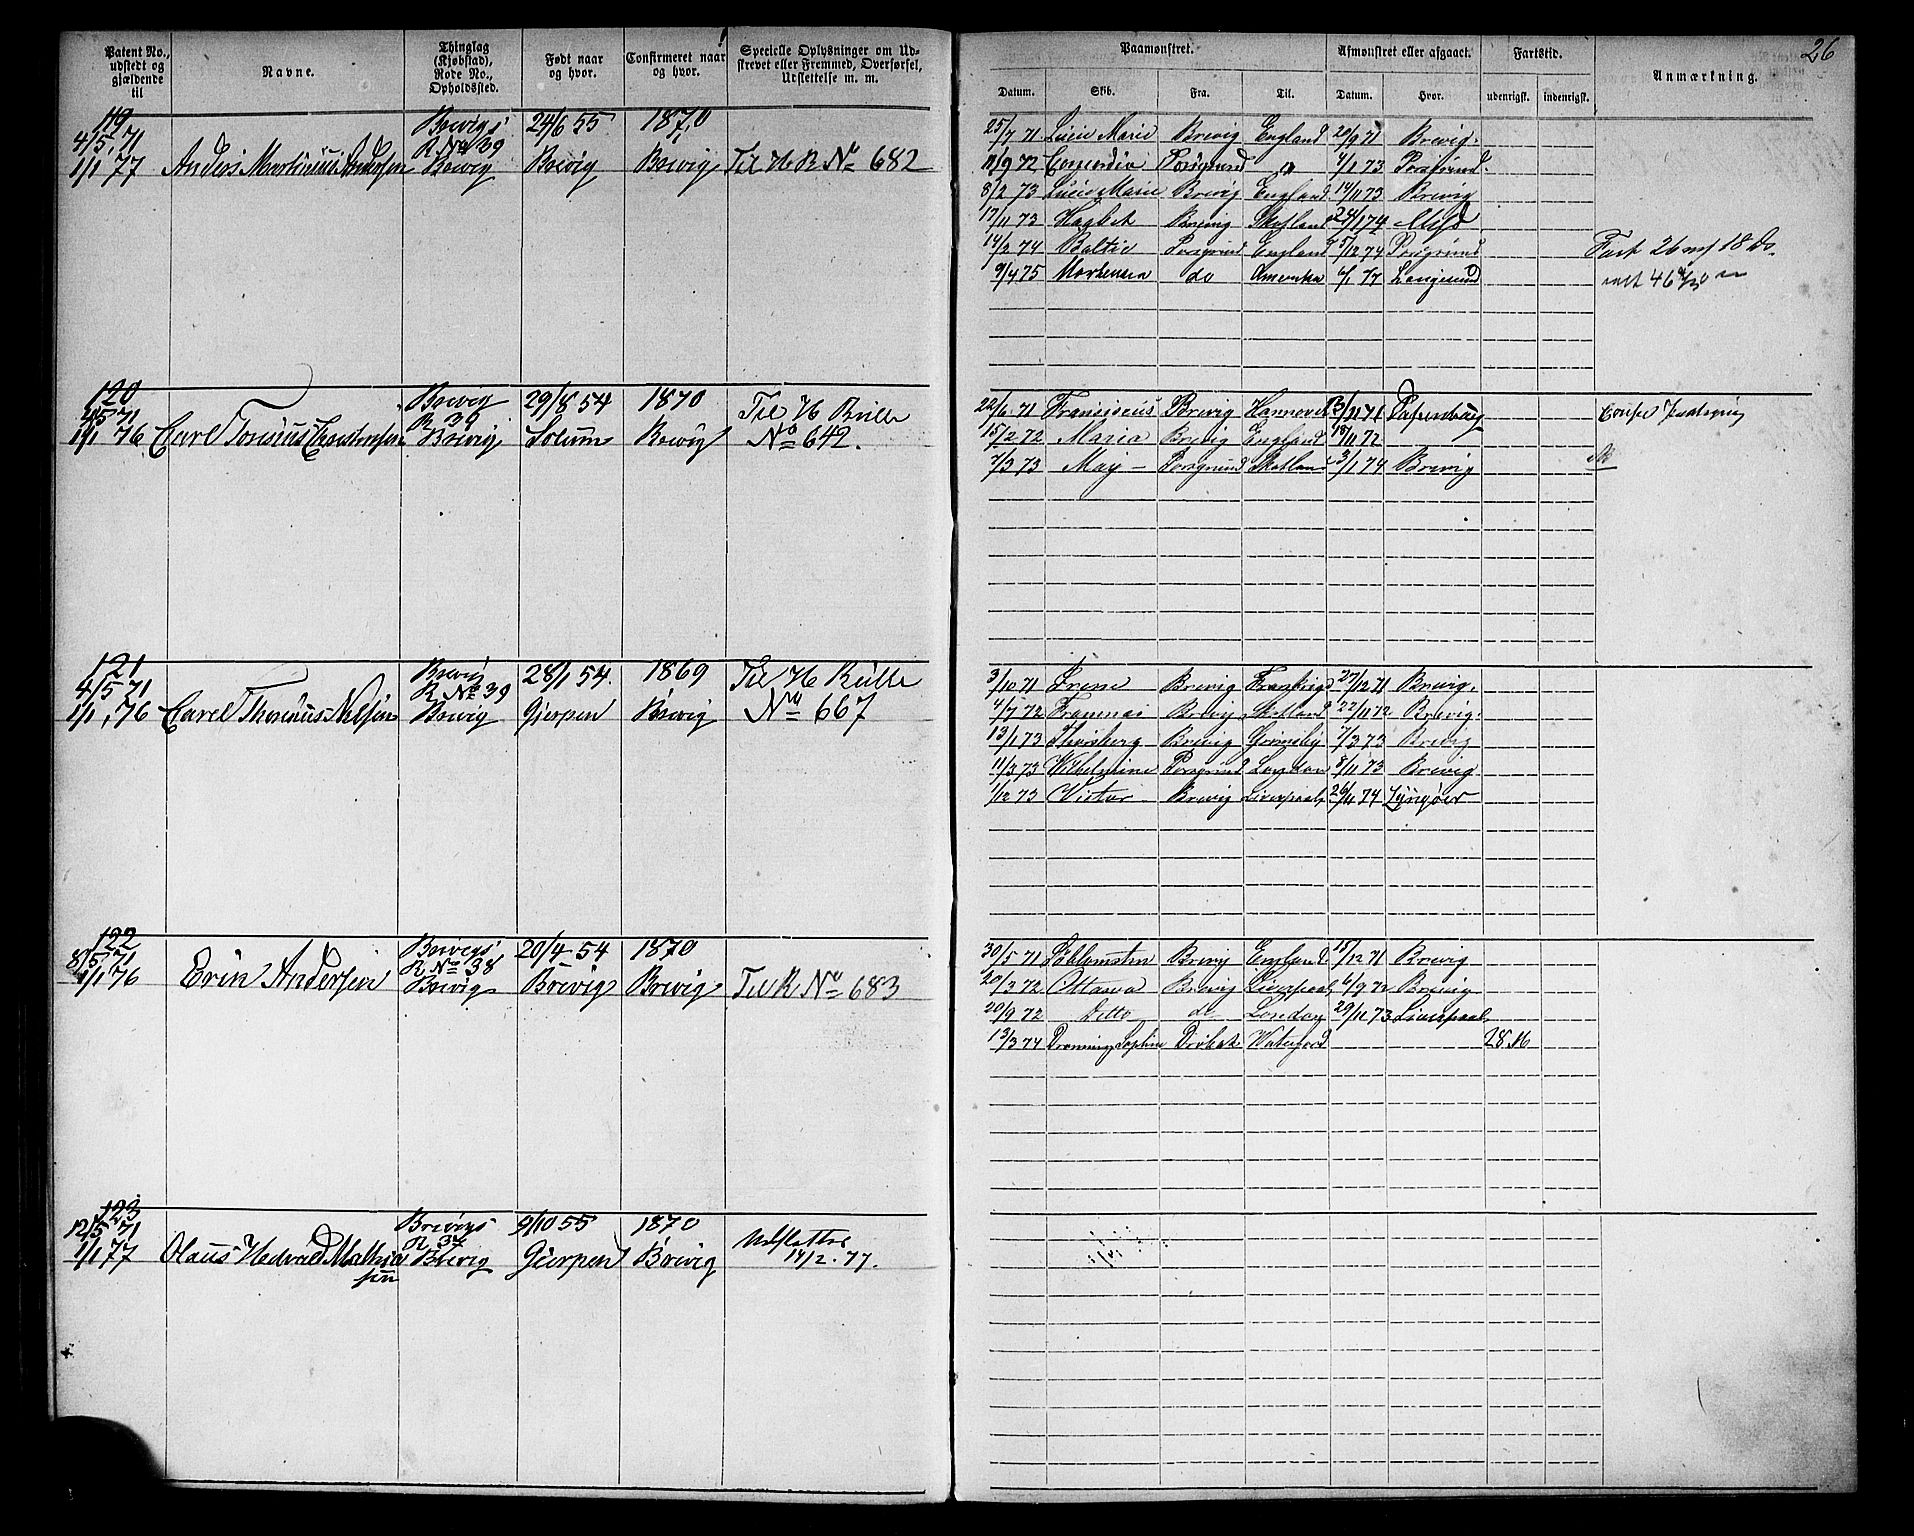 26
Patent No., udstedt og gjældende til
Navne.
Thinglag (Kjøbstad), Rode No., Opholdssted.
Født naar og hvor.
Confirmeret naar og hvor.
Specielle Oplysninger om Udskrevet eller Fremmed, Overførsel, Udslettelse m. m.
Paamønstret.
Afmønstret eller afgaaet.
Fartstid.
Anmærkning.
Datum. Skib. Fra. Til. Datum. Hvor. udenrigsk. indenrigsk.
119 Brevigs 24/6 55 1870
4/5 71 R No 39
1/1 77 Anders Martinius Andersen Brevig Brevig Brevig Til H R No 682
25/7 71 Lucie Marie Brevig England 20/9 71 Brevig.
11/9 72 Concordia Porsgrund " 4/1 73 Porsgrund.
8/2 73 Lucie Marie Brevig England 14/11 73 Brevig
17/11 73 Brevig Skotland 24/1 74
14/2 74 Baltic Porsgrund England 5/12 74 Porsgrund
9/4 75 Mortensen do Amerika 6/1 77 Langesund
Fart 26 18 do
120 Brevig 29/8 54 1870 Til H Rulle
4/5 71 R 39
1/1 76 Carl Brevig Solum Brevig No 642.
22/6 71 Franciscus Brevig Hannover 13/11 71 Papenburg
15/2 72 Maria Brevig England 18/11 72
7/3 73 May Porsgrund Skotland 3/1 74 Brevig
121 Brevig 28/1 54. 1869 Til H Rulle
4/5 71 R No 39
1/1 76 Carel Thorinus Nilsen Brevig Gjerpen Brevig No 667
3/10 71 Irene Brevig 27/12 71 Brevig.
4/7 72 Framnæs Brevig Skotland 22/11 72 Brevig.
13/1 73 Brevig Grimsby 7/3 73 Brevig
11/3 73 Wilhelmine Porsgrund London 8/11 73 Brevig
1/12 73 Victor Brevig Liverpool 26/11 74 Lyngøer
122 Brevigs 20/4 54 1870
8/5 71 R No 38
1/1 76 Erin Andersen Brevig Brevig Brevig Til R No 683
30/5 71 Brevig England 15/12 71 Brevig
20/3 72 Ottawa Brevig Liverpool 6/9 72 Brevig
20/9 72 Ditto do London 29/11 73 Liverpool
13/3 74 Dronning Sophie Drøbak Waterford 28 M
123 Brevigs 9/10 55 1870 Udslettet
12/5 71 R 37
1/1 77 Olaus Hedvad Mathiesen Brevig Gjerpen Brevig 14/2. 77.